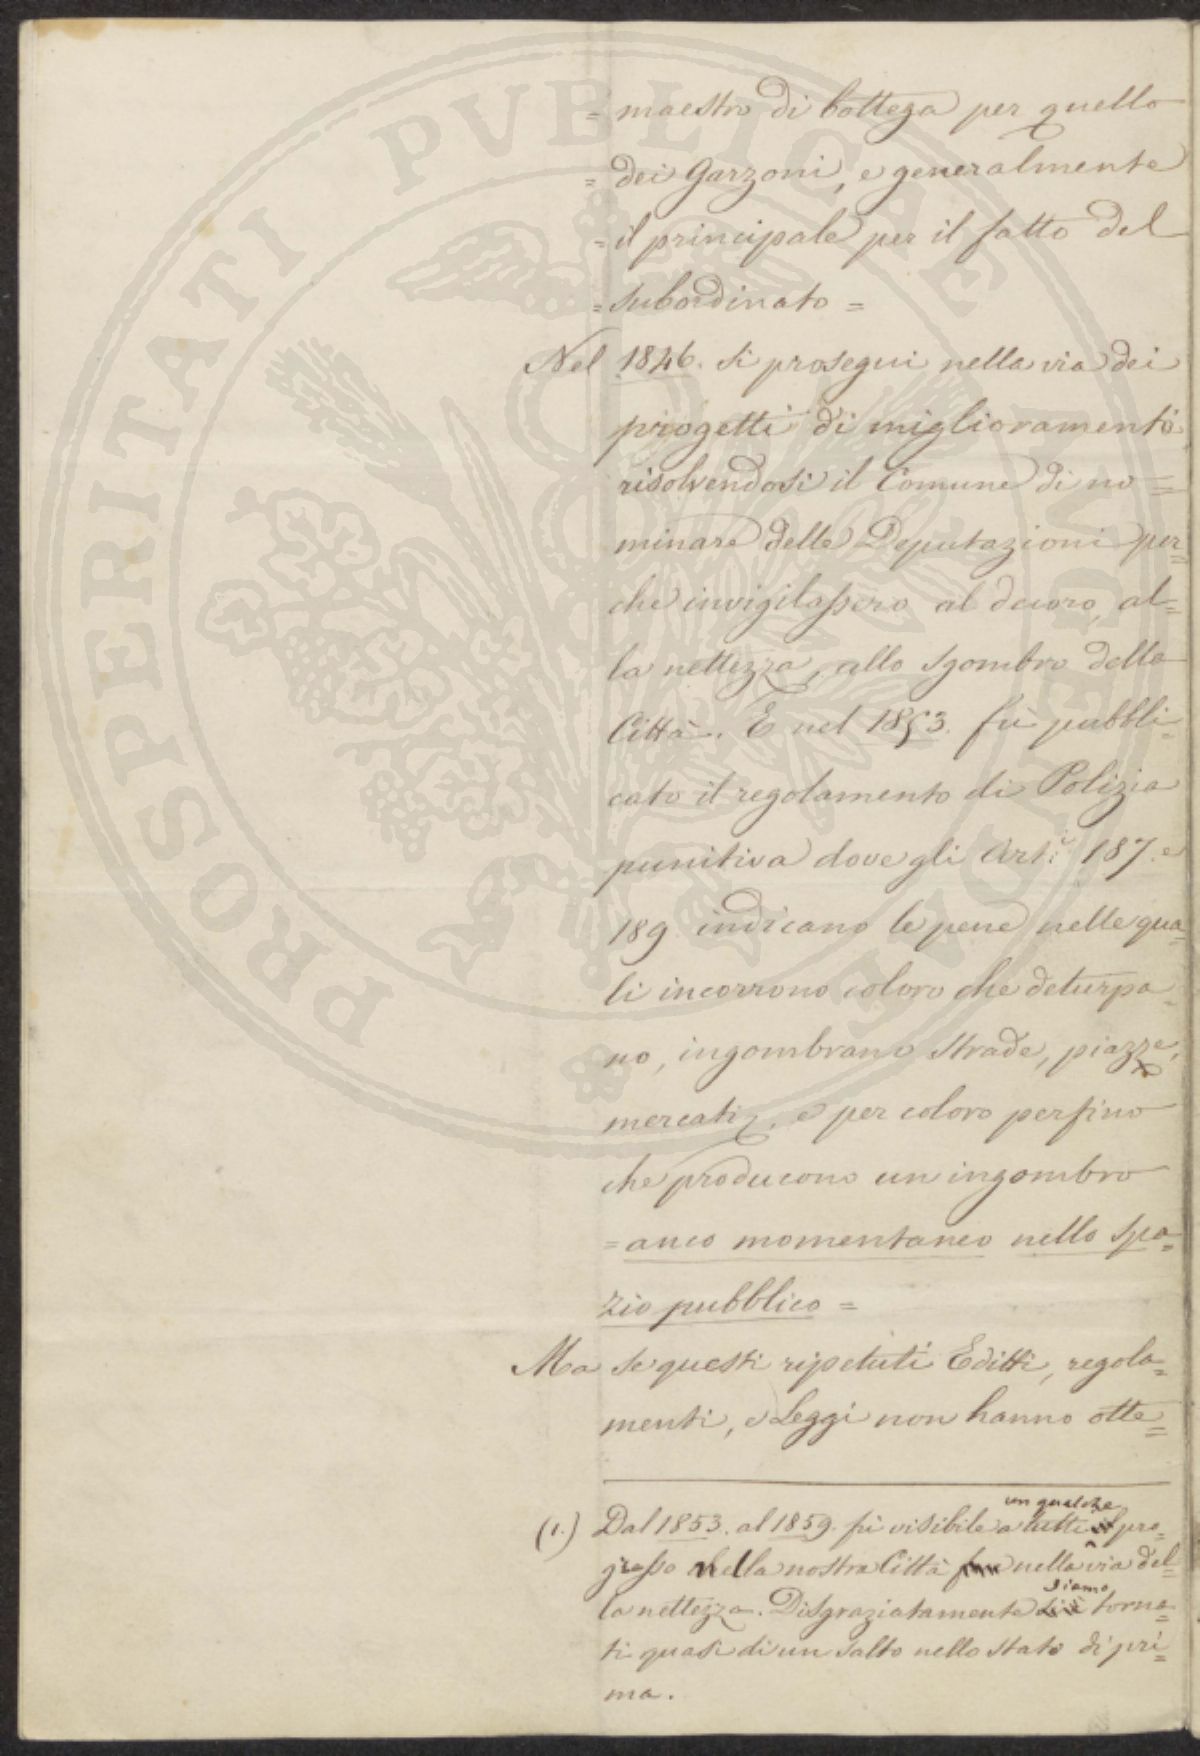 = maestro di bottega per quello
= dei Garzoni, e generalmente
= il principale per il fatto del
= subordinato =
Nel 1846. si proseguì nella via dei
progetti di miglioramento
risolvendosi il Comune di no=
minare delle Deputazioni per=
che invigilassero al decoro, al=
la nettezza, allo sgombro della
Città. E nel 1853. fù pubbli=
cato il regolamento di Polizia
punitiva dove gli Arti. 187. e
189 indicano le pene nelle qua=
li incorrono coloro che deturpa=
no, ingombrano strade, piazze,
mercati, e per coloro perfino
che producono un ingombro
= anco momentaneo nello spa=
zio pubblico =
Ma se questi ripetuti Editti, regola=
menti, e Leggi non hanno otte=
(1.) Dal 1853. al 1859. fù visibile a tutti un qualche pro=
gresso nella nostra Città nella via del=
la nettezza. Disgraziatamente siamo torna=
ti quasi di un salto nello stato di pri=
ma.
PROSPERITATI PVBLICAE AVGENDAE